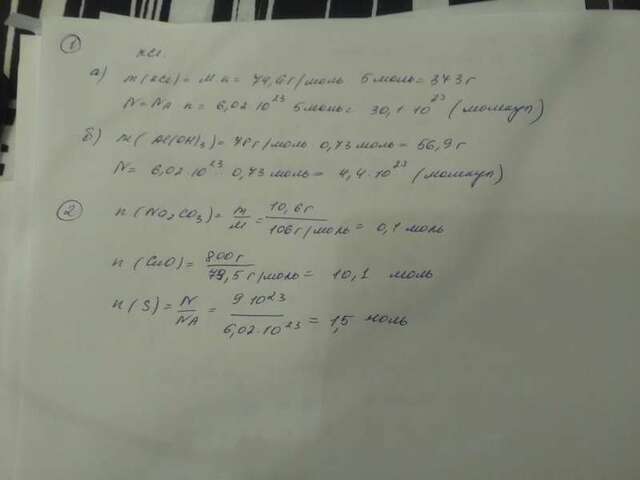 1
KCl.
а) m(KCl) = M·n = 74,6 г/моль 5 моль = 373 г
N = NA n = 6,02·10²³ 5 моль = 30,1·10²³ (молекул)
б) m(Al(OH)₃) = 78 г/моль 0,73 моль = 56,9 г
N = 6,02·10²³ 0,73 моль = 4,4·10²³ (молекул)
2
n(Na₂CO₃) = m/M = 10,6 г / 106 г/моль = 0,1 моль
n(CuO) = 800 г / 79,5 г/моль = 10,1 моль
n(S) = N/NA = 9 10²³ / 6,02·10²³ = 1,5 моль